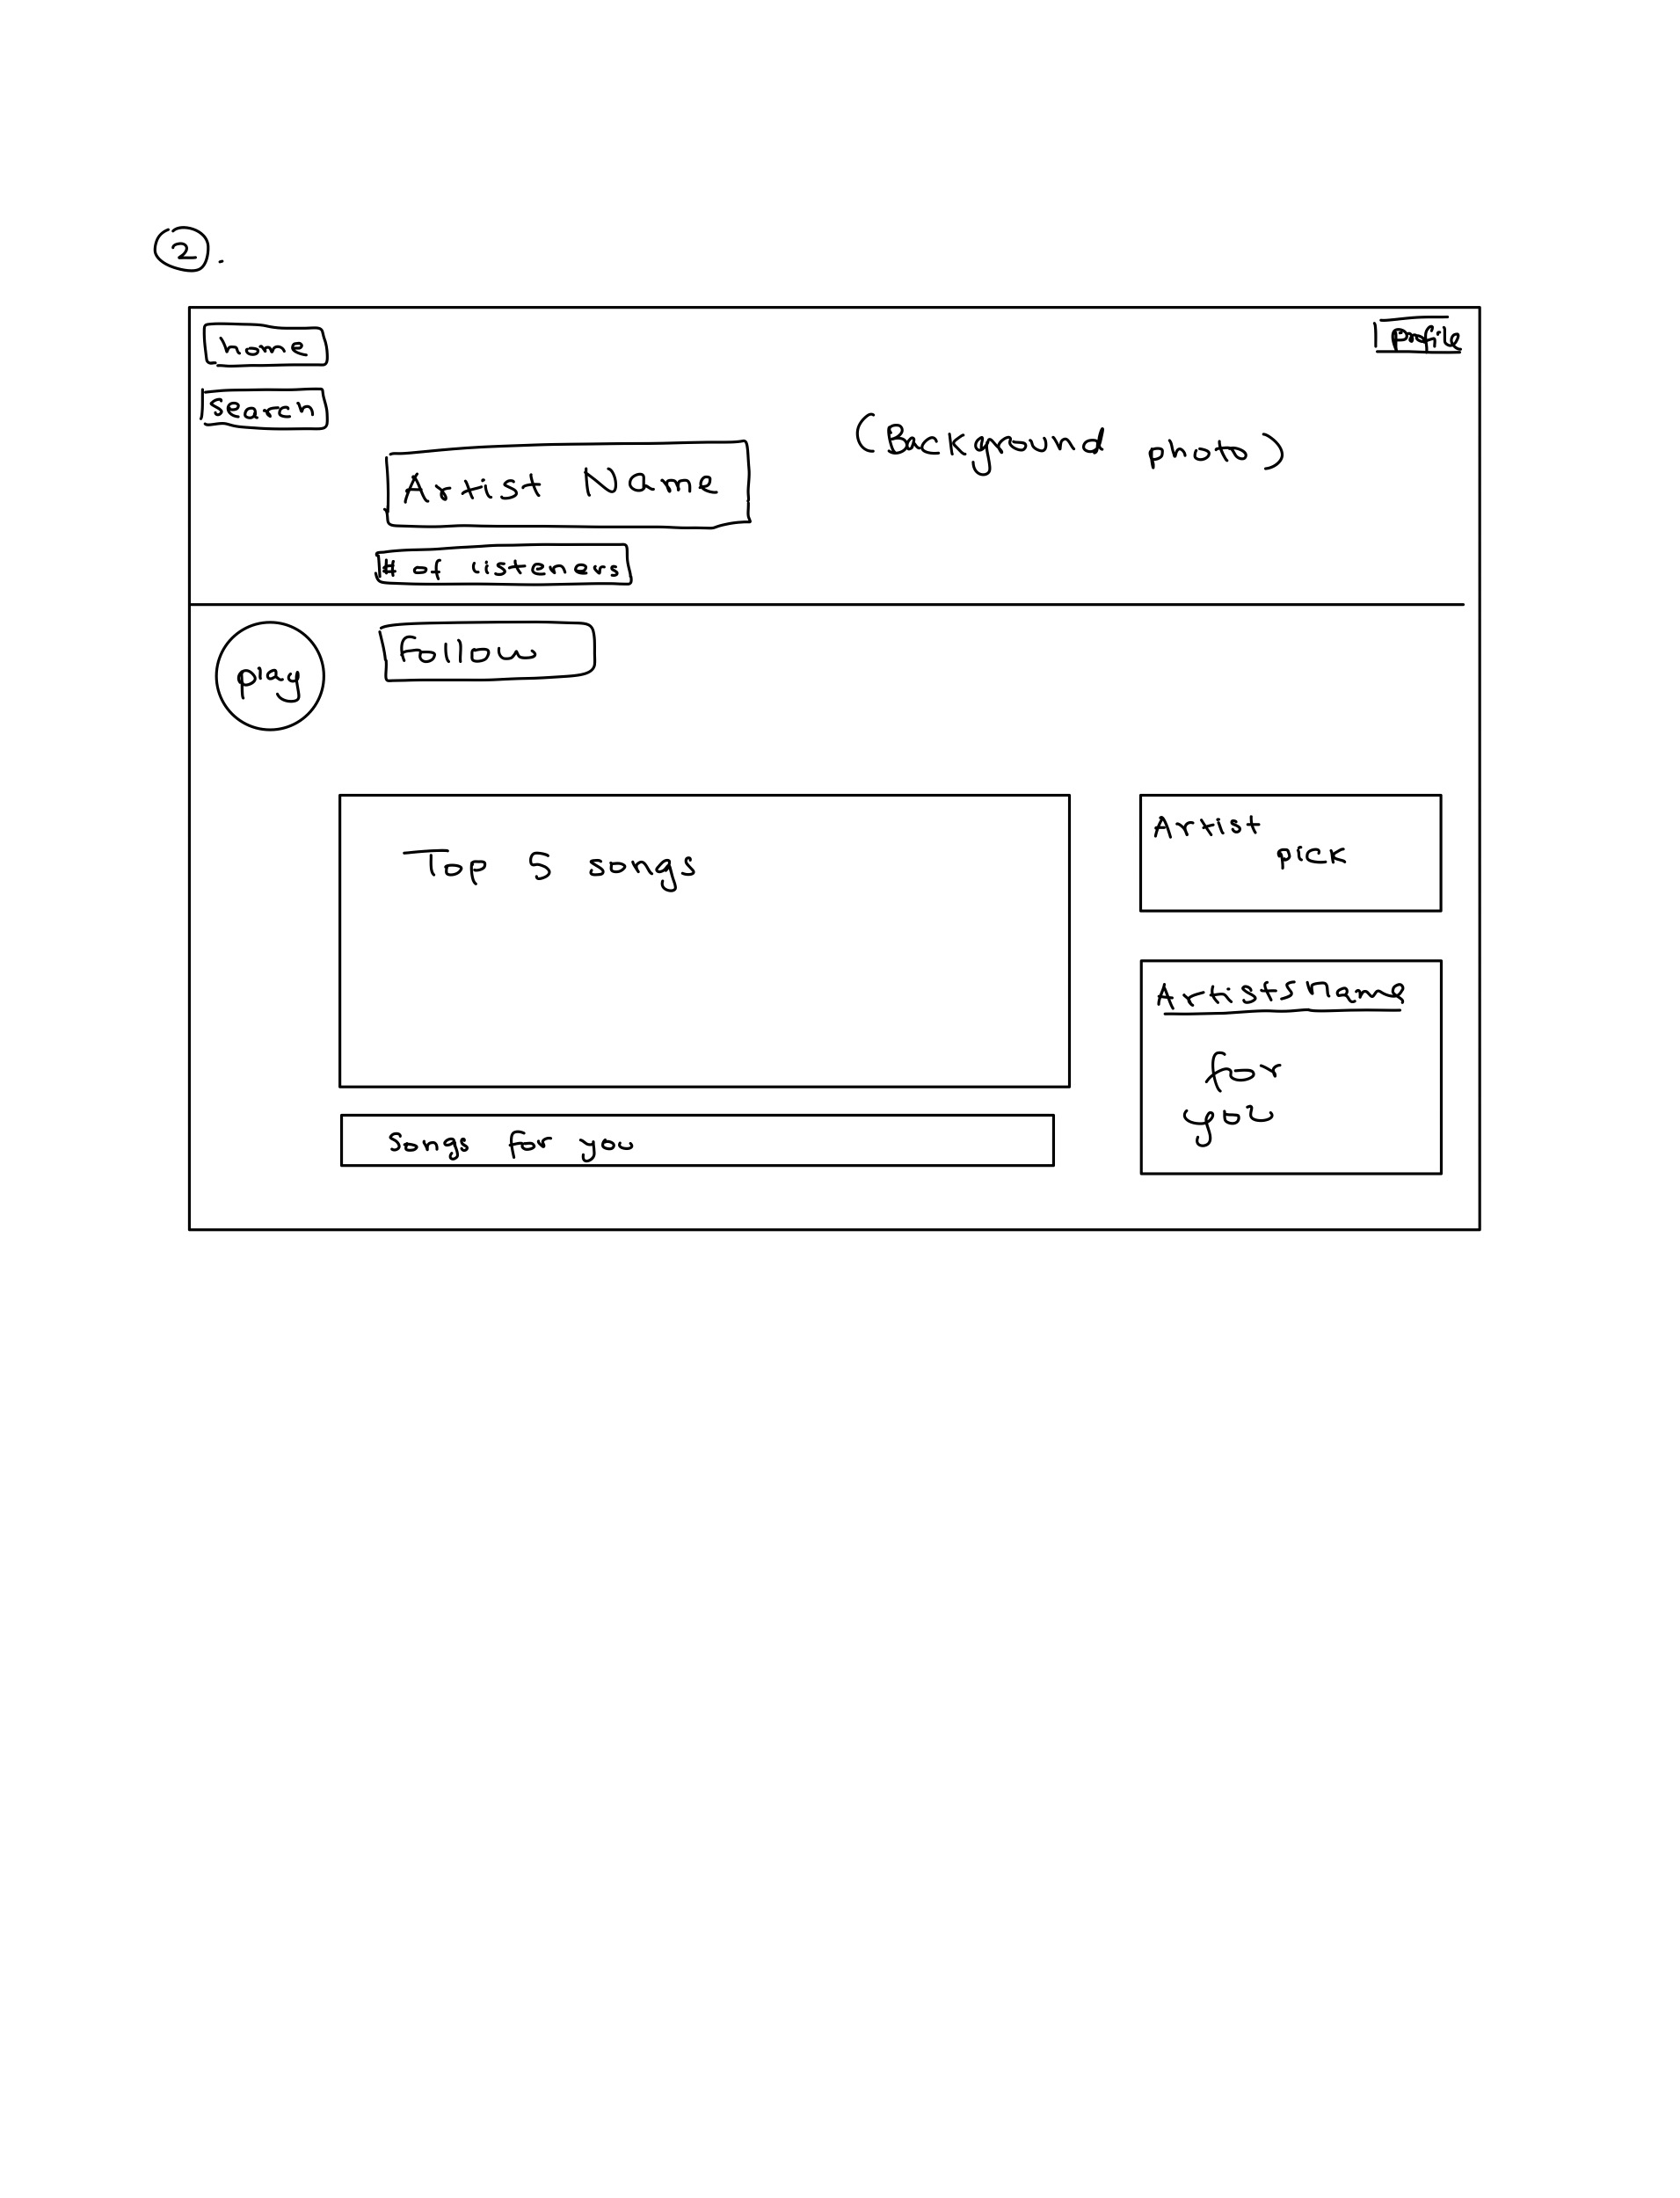 2.
home
profile
search
(Background photo)
Artist Name
# of listeners
play
follow
Top 5 songs
Artist
pick
Artists name
for
you
songs for you